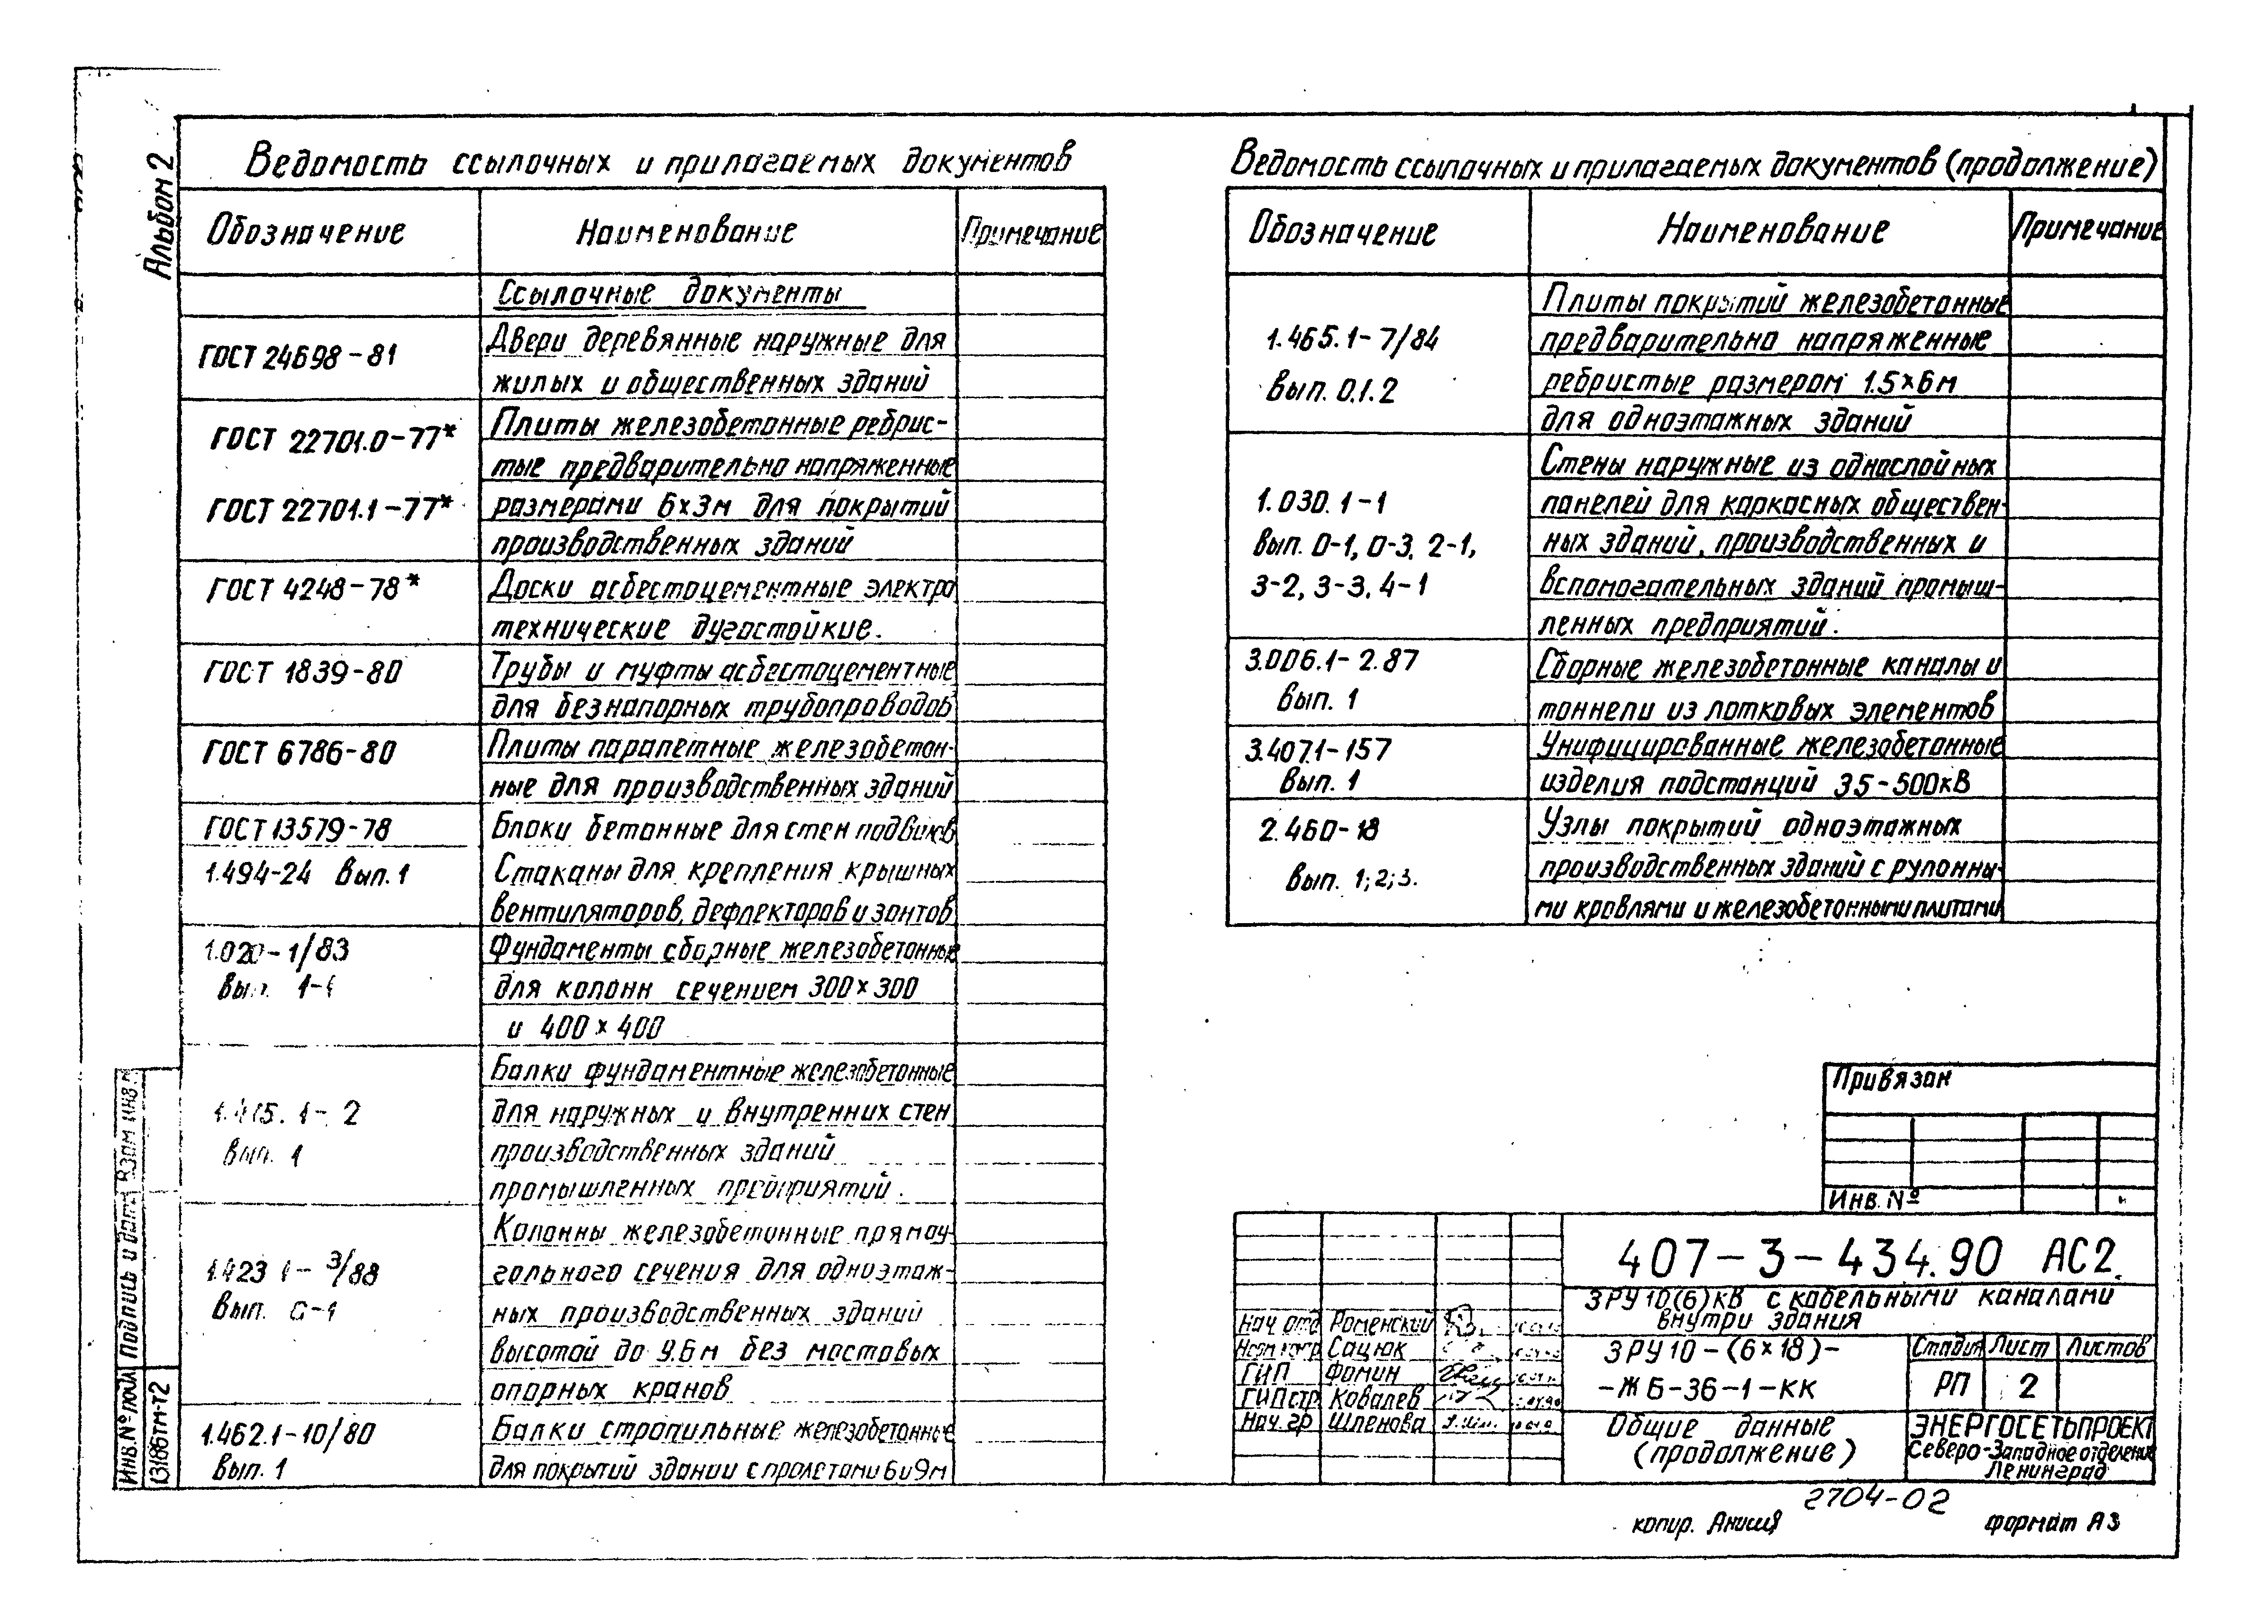 Альбом 2
Ведомость ссылочных и прилагаемых документов
Обозначение Наименование Примечание
Ссылочные документы
ГОСТ 24698-81 Двери деревянные наружные для
жилых и общественных зданий
ГОСТ 22701.0-77* Плиты железобетонные ребрис-
тые предварительно напряженные
ГОСТ 22701.1-77* размерами 6х3м для покрытий
производственных зданий
ГОСТ 4248-78* Доски асбестоцементные электро
технические дугостойкие.
ГОСТ 1839-80 Трубы и муфты асбестоцементные
для безнапорных трубопроводов
ГОСТ 6786-80 Плиты парапетные железобетон-
ные для производственных зданий
ГОСТ 13579-78 Блоки бетонные для стен подвалов
1.494-24 Вып. 1 Стаканы для крепления крышных
вентиляторов, дефлекторов и зонтов
1.020-1/83 Фундаменты сборные железобетонные
Вып. 1-1 для колонн сечением 300×300
и 400×400
Балки фундаментные железобетонные
1.415.1-2 для наружных и внутренних стен
Вып. 1 производственных зданий
промышленных предприятий.
Колонны железобетонные прямоу-
1.423.1-3/88 гольного сечения для одноэтаж-
Вып. 0-1 ных производственных зданий
высотой до 9.6м без мостовых
опорных кранов
1.462.1-10/80 Балки стропильные железобетонные
Вып. 1 для покрытий зданий с пролетами 6и9м
Ведомость ссылочных и прилагаемых документов (продолжение)
Обозначение Наименование Примечание
Плиты покрытий железобетонные
1.465.1-7/84 предварительно напряженные
Вып. 0.1.2 ребристые размером 1.5×6м
для одноэтажных зданий
Стены наружные из однослойных
1.030.1-1 панелей для каркасных обществен-
вып. 0-1, 0-3, 2-1, ных зданий, производственных и
3-2, 3-3, 4-1 вспомогательных зданий промыш-
ленных предприятий.
3.006.1-2.87 Сборные железобетонные каналы и
вып. 1 тоннели из лотковых элементов
3.407.1-157 Унифицированные железобетонные
Вып. 1 изделия подстанций 35-500кВ
2.460-18 Узлы покрытий одноэтажных
Вып. 1;2;3. производственных зданий с рулонны-
ми кровлями и железобетонными плитами
Привязан
Инв. №
407-3-434.90 АС2
ЗРУ 10(6)кВ с кабельными каналами
внутри здания
Нач отд Роменский
Сацюк
ГИП Фомин
ГИПстр Ковалев
Нач. гр Шленова
ЗРУ 10-(6×18)-
-ЖБ-36-1-КК
Стадия Лист Листов
РП 2
Общие данные
(продолжение)
ЭНЕРГОСЕТЬПРОЕКТ
Северо-Западное отделение
Ленинград
2704-02
копир. формат А3
Инв.№подл Подпись и дата Взам инв.
13186тм-т2